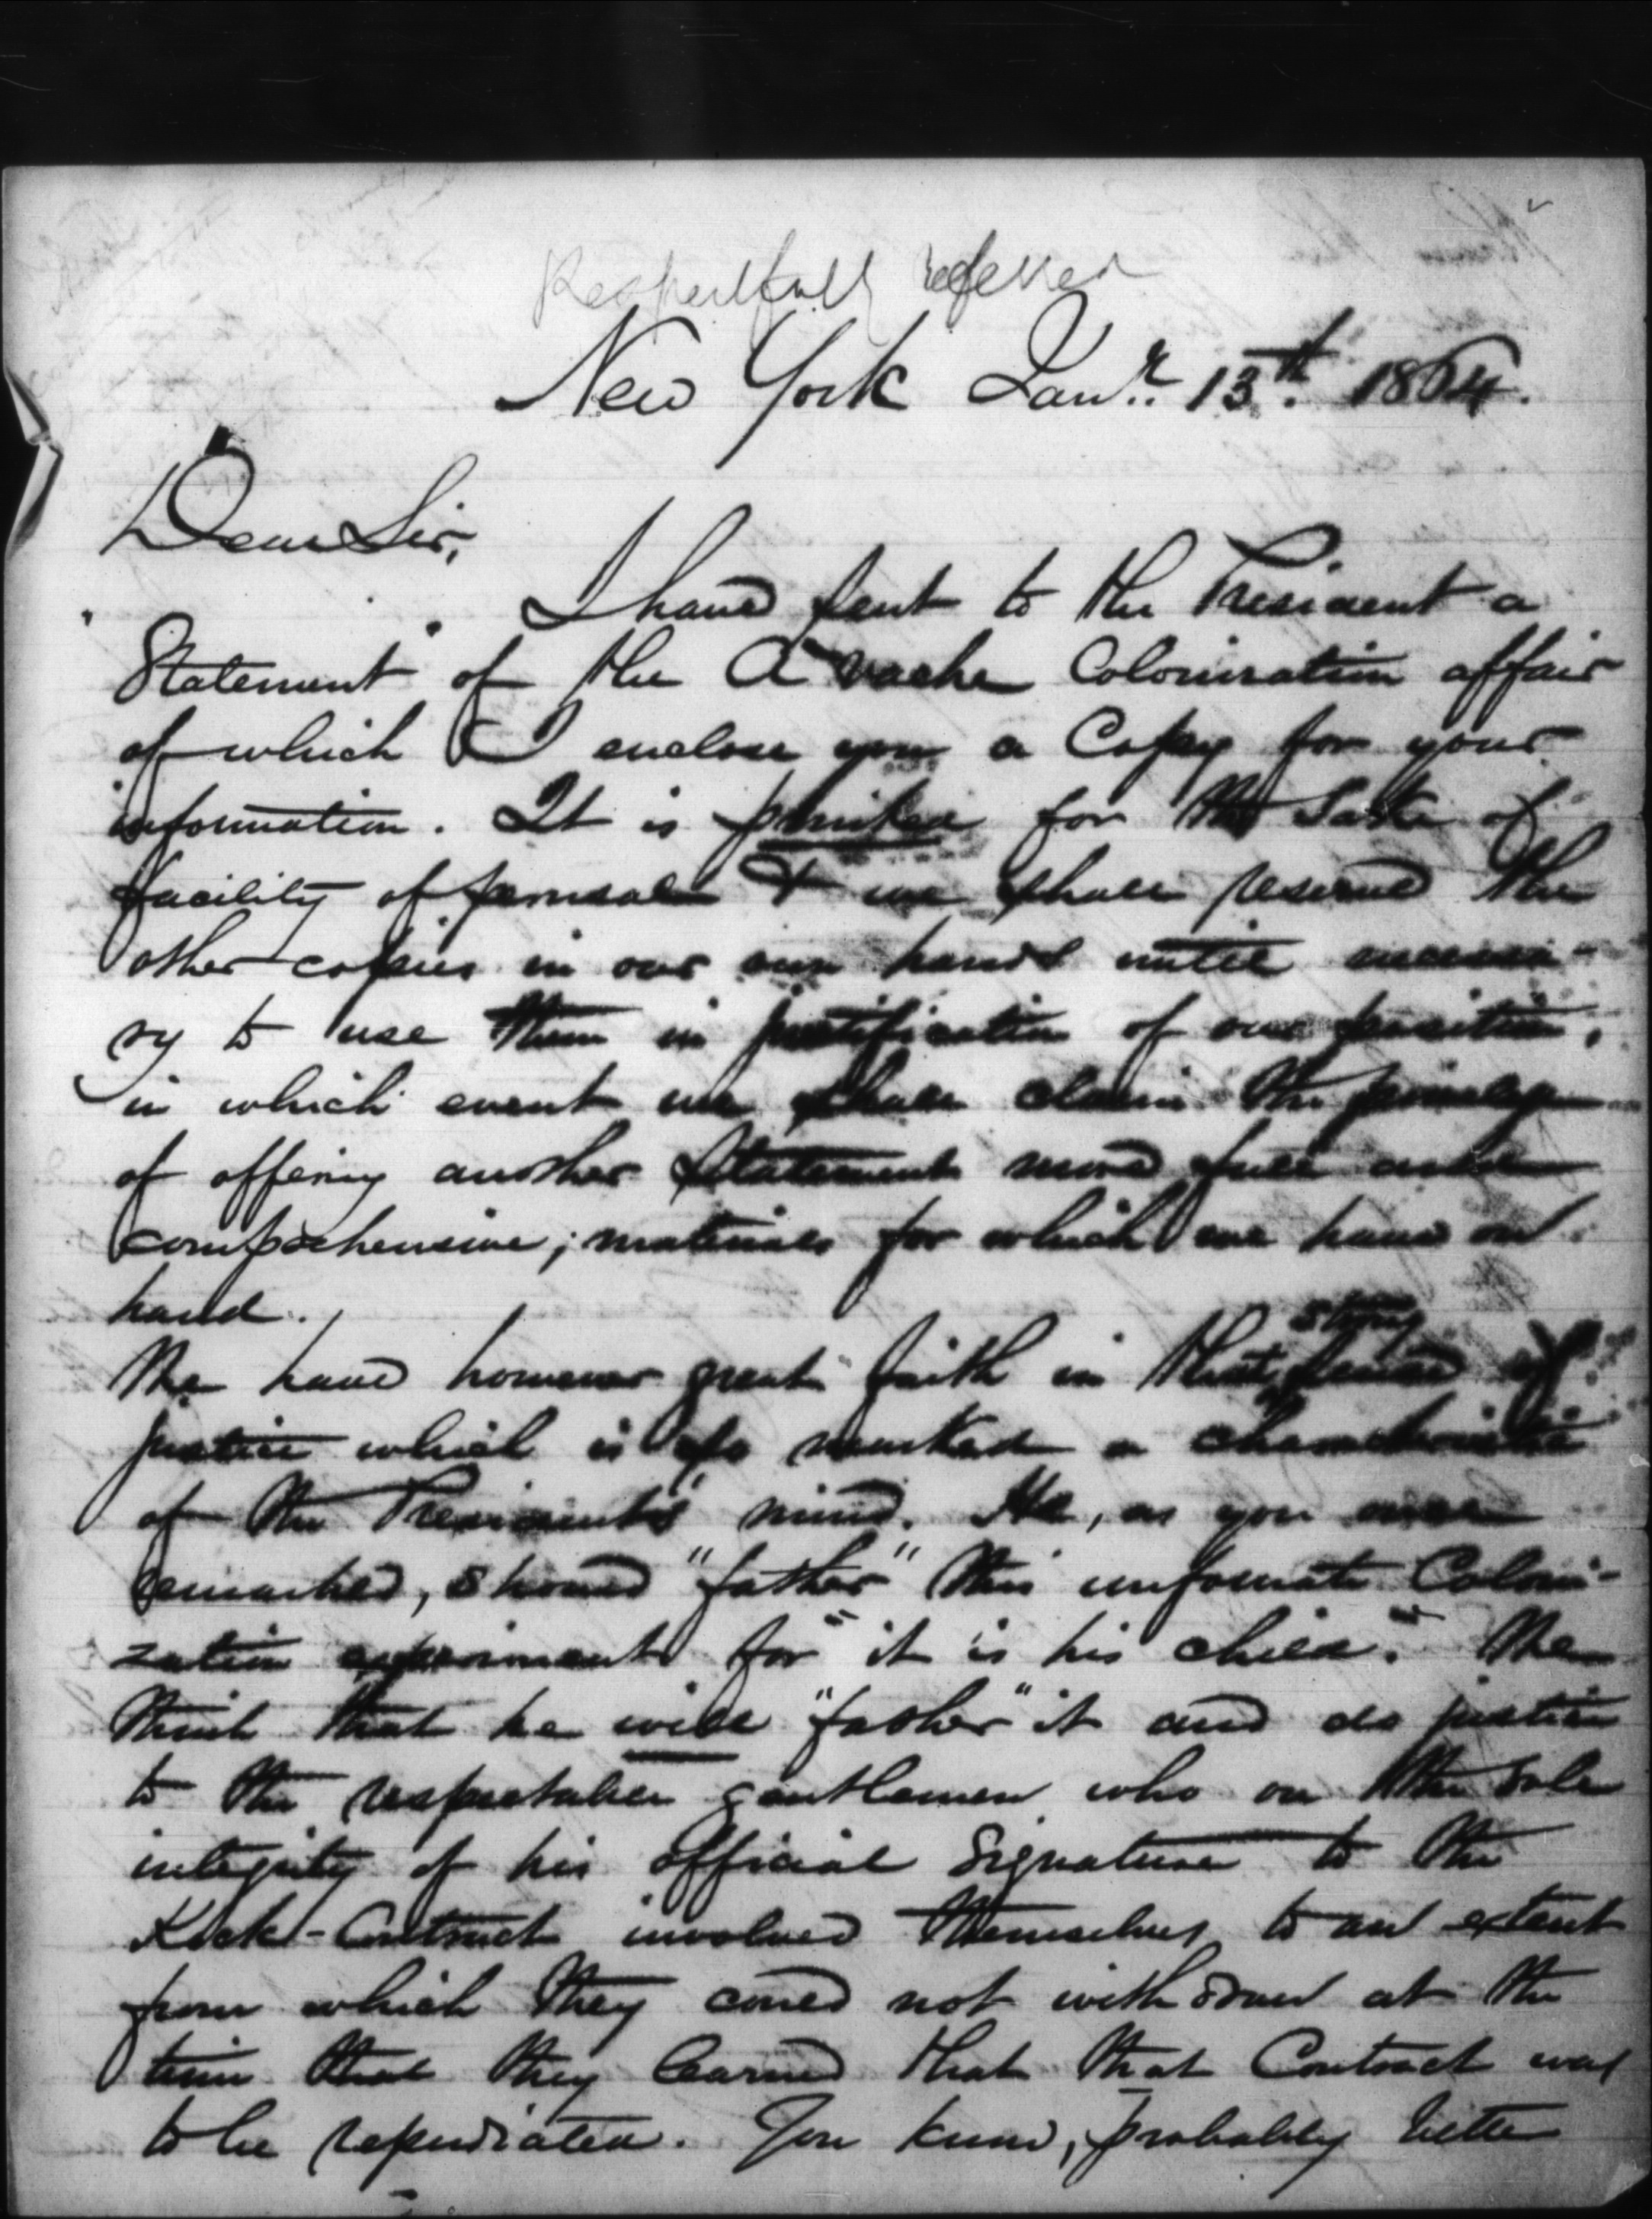 Respectfully refered
New York Janʳ. 13th. 1864.
Dear Sir,
I have sent to the President a
"Statement" of the A'vache Colonization affair
of which I enclose you a Copy for your
information. It is printed for the Sake of
facility of perusal & we shall reserve the
other copies in our own hands until necessa-
ry to use them in justification of our position,
in which event we shall claim the privilege
of offering another Statement more full and
comprehensive; materials for which we have on
hand.
strong
We have however great faith in that sense of
justice which is so marked a characteristic
of the President's mind. He, as you once
remarked, should "father" this unfortunate Coloni-
zation experiment for "it is his child". We
think that he will "father" it and do justice
to the respectable gentlemen who on the sole
integrity of his official Signature to the
Kock-Contract involved themselves to an extent
from which they could not withdraw at the
time that they learned that that Contract was
to be repudiated. You know, probably better